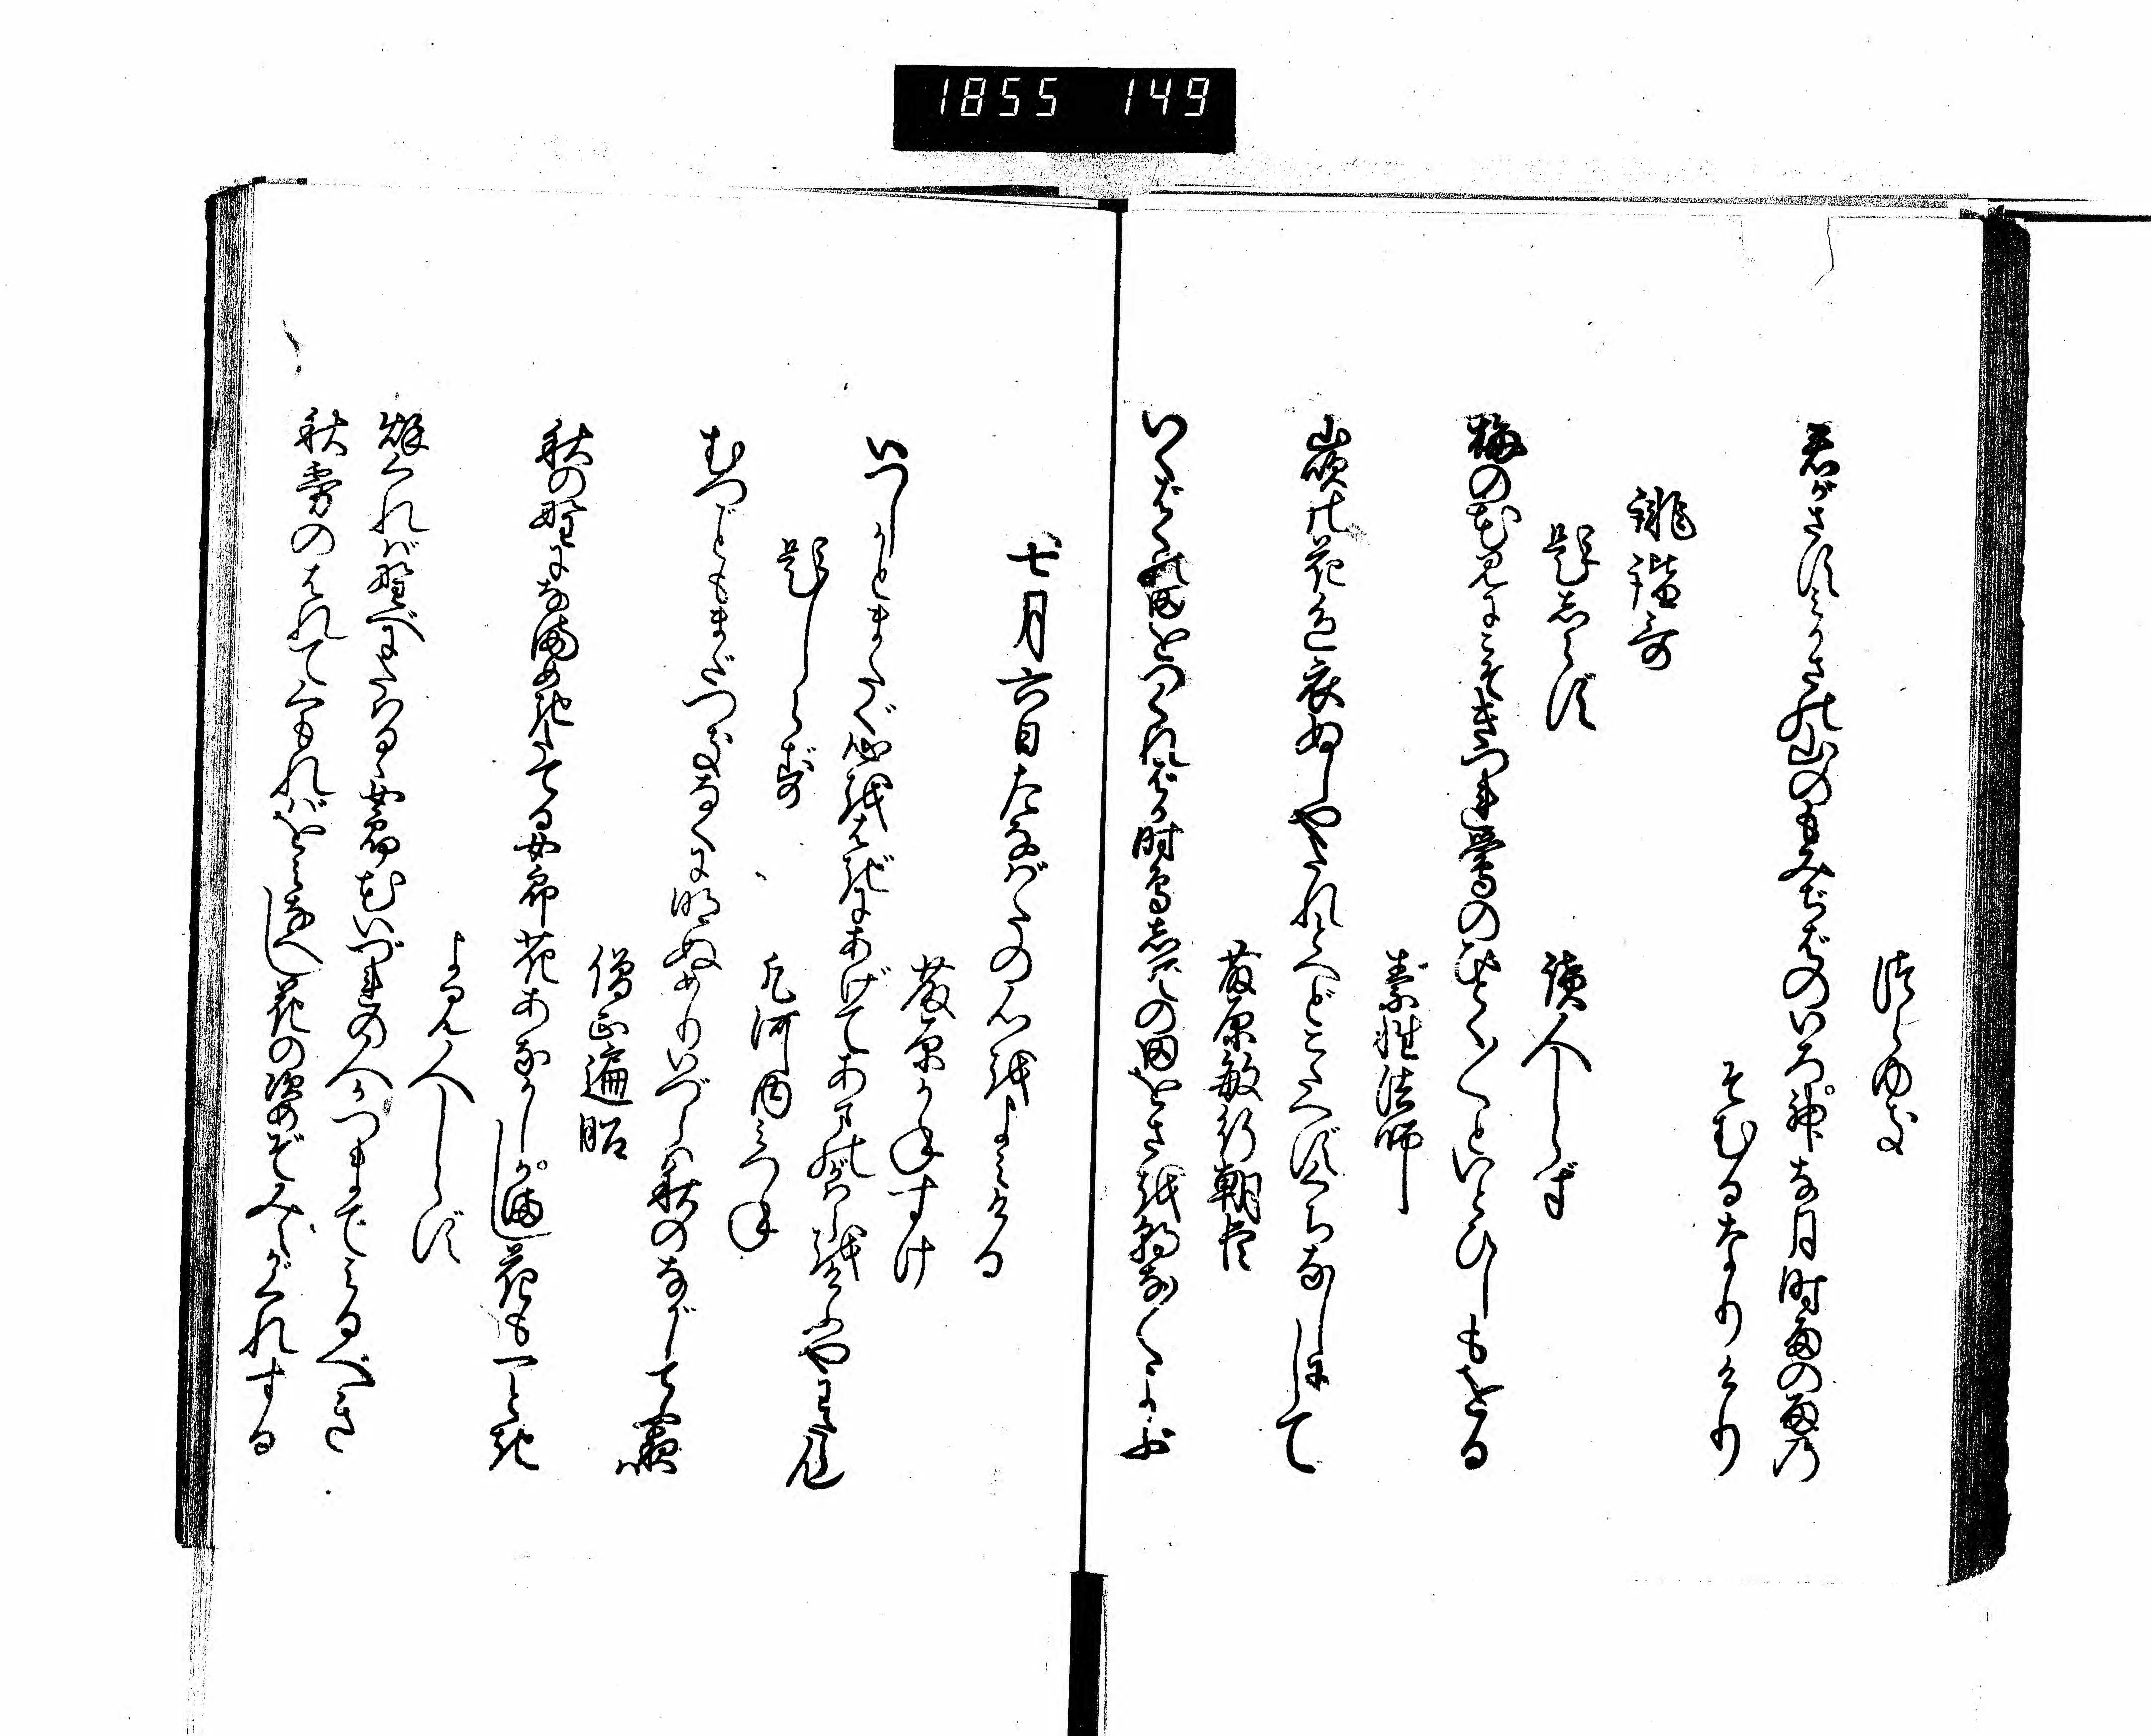 1855 149
つらゆき
君がさすみかさの山のもみぢばのいろ神な月時雨の雨の
そむるなりけり
誹諧哥
題しらず
読人しらず
梅の花見にこそきつれ鶯のひとく／＼といとひしもをる
素性法師
山吹の花色衣ぬしやたれとへどこたへずくちなしにして
藤原敏行朝臣
いくばくの田をつくればか時鳥しでの田をさを朝な／＼よぶ
七月六日たなばたの心をよみける
藤原かねすけ
いつしかとまたぐ心をはぎにあげてあまのかはらをけふやわたらん
題しらず
凡河内みつね
むつごともまだつきなくに明ぬめりいづらは秋のながしてふ夜は
僧正遍昭
秋の野になまめきたてる女郎花あなかしがまし花も一とき
よみ人しらず
秋くれば野べにたはるゝ女郎花いづれの人かつまでみるべき
秋霧のはれてくもればをみなへし花の姿ぞみえがくれする